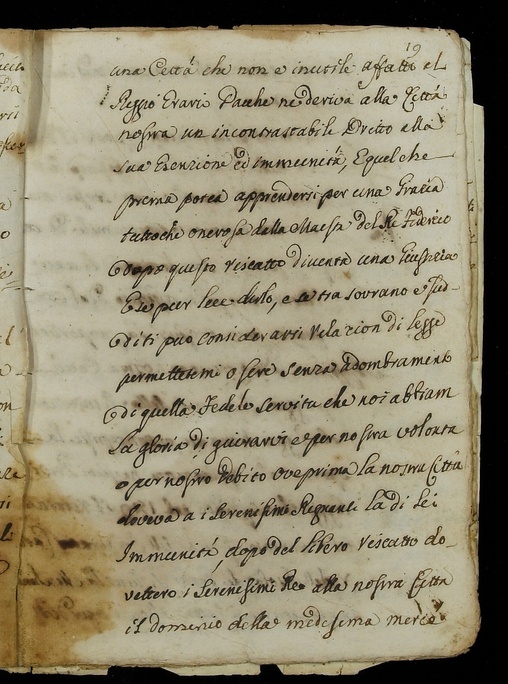 19
una Cettá che non e inutile affatto al
Reggio Erario Dacche ne deriva alla Città
nostra un incontrastabile Dritto alla
sua Esenzione ed immunità, E quel che
prima potea apprendersi per una Grazia
tuttoche onerosa dalla Maestà del Ré Federico
Dopo questo rescatto diventa una Giustizia
E se pur lece dirlo, e se tra sovrano e sud-
diti puo considerarsi relazion di legge
permettetemi o Sere senza adombramento
di quella Fedele servitu che noi abbiam
La gloria di giurarvi e per nostra volonta
o per nostro Debito ove prima la nostra Città
doveva a i Serenissimi Regnanti la di Lei
Immunità, dopo del libero rescatto do-
vettero i Serenissimi Re alla nostra Citta
il dominio della medesima mercé